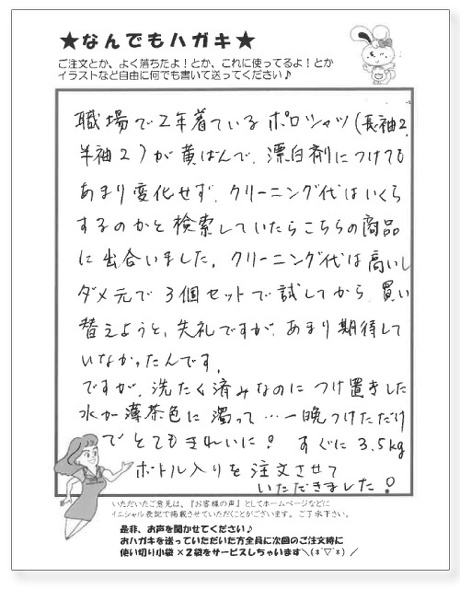 ★なんでもハガキ★
ご注文とか、よく落ちたよ！とか、これに使ってるよ！とか
イラストなど自由に何でも書いて送ってください♪
職場で2年着ているポロシャツ(長袖2、
半袖2)が黄ばんで、漂白剤につけても
あまり変化せず、クリーニング代はいくら
するのかと検索していたらこちらの商品
に出合いました。クリーニング代は高いし
ダメ元で3個セットで試してから買い
替えようと、失礼ですが、あまり期待して
いなかったんです。
ですが、洗たく済みなのにつけ置きした
水が薄茶色に濁って…一晩つけただけ
でとてもきれいに！すぐに3.5kg
ボトル入りを注文させて
いただきました！
いただいたご意見は、『お客様の声』としてホームページなどに
イニシャル表記で掲載させていただくことがございます。ご了承下さい。
是非、お声を聞かせてください♪
おハガキを送っていただいた方全員に次回のご注文時に
使い切り小袋×2袋をサービスしちゃいます＼(*ﾟ▽ﾟ*)／